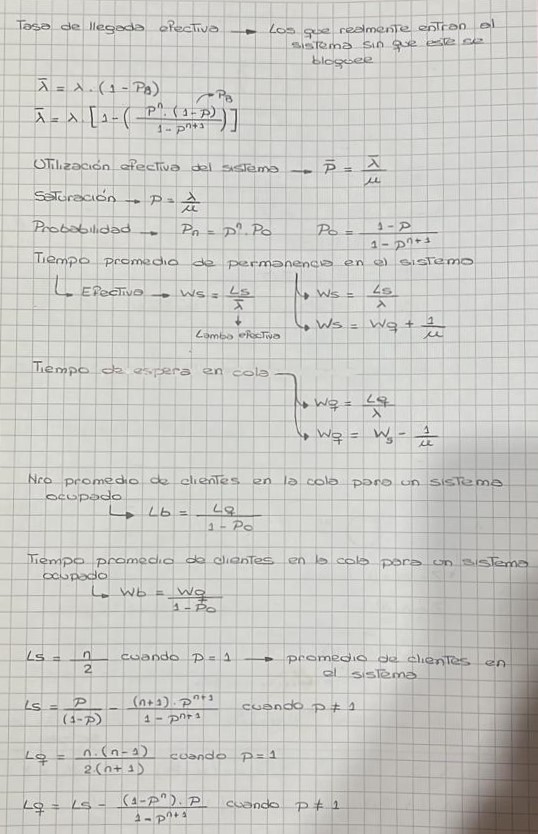 Tasa de llegada efectiva → Los que realmente entran al
sistema sin que este se
bloquee
λ̄ = λ . (1 - PB)
λ̄ = λ . [1 - (p^n . (1-p) / 1 - p^(n+1))] → PB
Utilización efectiva del sistema → p̄ = λ̄ / μ
Saturación → p = λ / μ
Probabilidad → Pn = p^n . P0    P0 = 1 - p / 1 - p^(n+1)
Tiempo promedio de permanencia en el sistema
↳ Efectivo → Ws = Ls / λ̄    ↳ Ws = Ls / λ
Lambda efectivo    ↳ Ws = Wq + 1 / μ
Tiempo de espera en cola
↳ Wq = Lq / λ
↳ Wq = Ws - 1 / μ
Nro promedio de clientes en la cola para un sistema
ocupado
↳ Lb = Lq / 1 - P0
Tiempo promedio de clientes en la cola para un sistema
ocupado
↳ Wb = Wq / 1 - P0
Ls = n / 2 cuando p = 1 → promedio de clientes en
el sistema
Ls = p / (1-p) - (n+1) . p^(n+1) / 1 - p^(n+1) cuando p ≠ 1
Lq = n.(n-1) / 2.(n+1) cuando p = 1
Lq = Ls - (1-p^n) . p / 1 - p^(n+1) cuando p ≠ 1